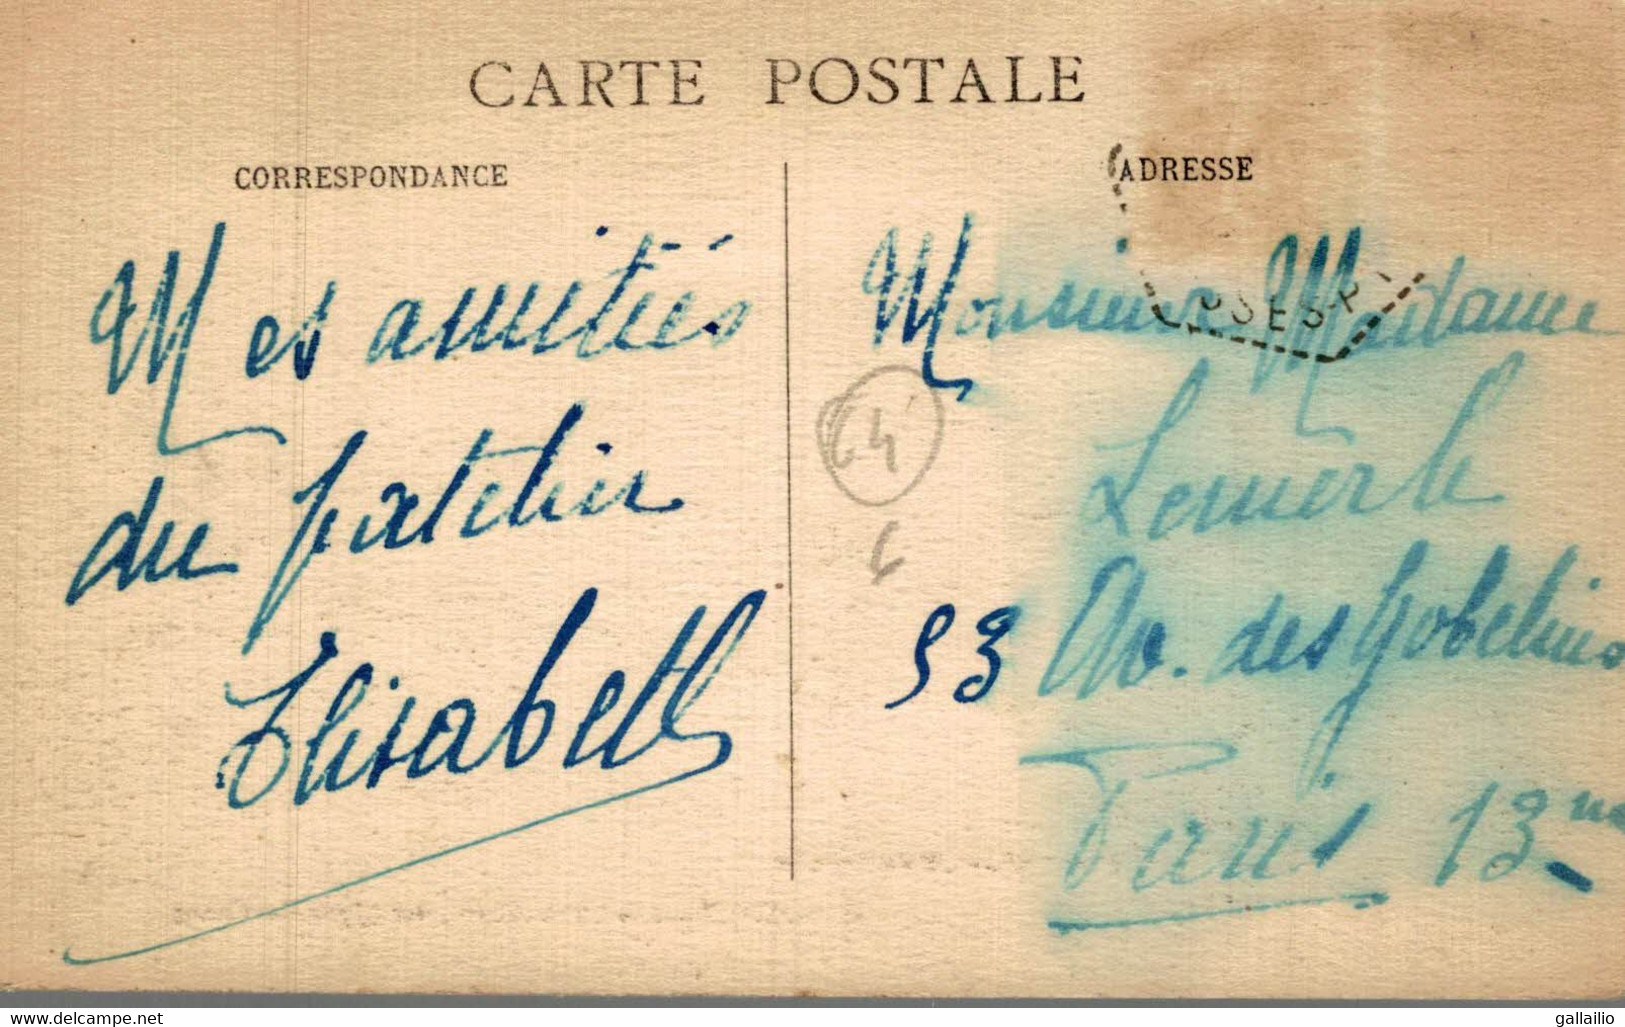 CARTE POSTALE
CORRESPONDANCE
ADRESSE
Mes amitiés
du
Elisabeth
Monsieur Madame
Lemerle
53 Av. des Gobelins
Paris 13me
64
6
delcampe.net
gallailio